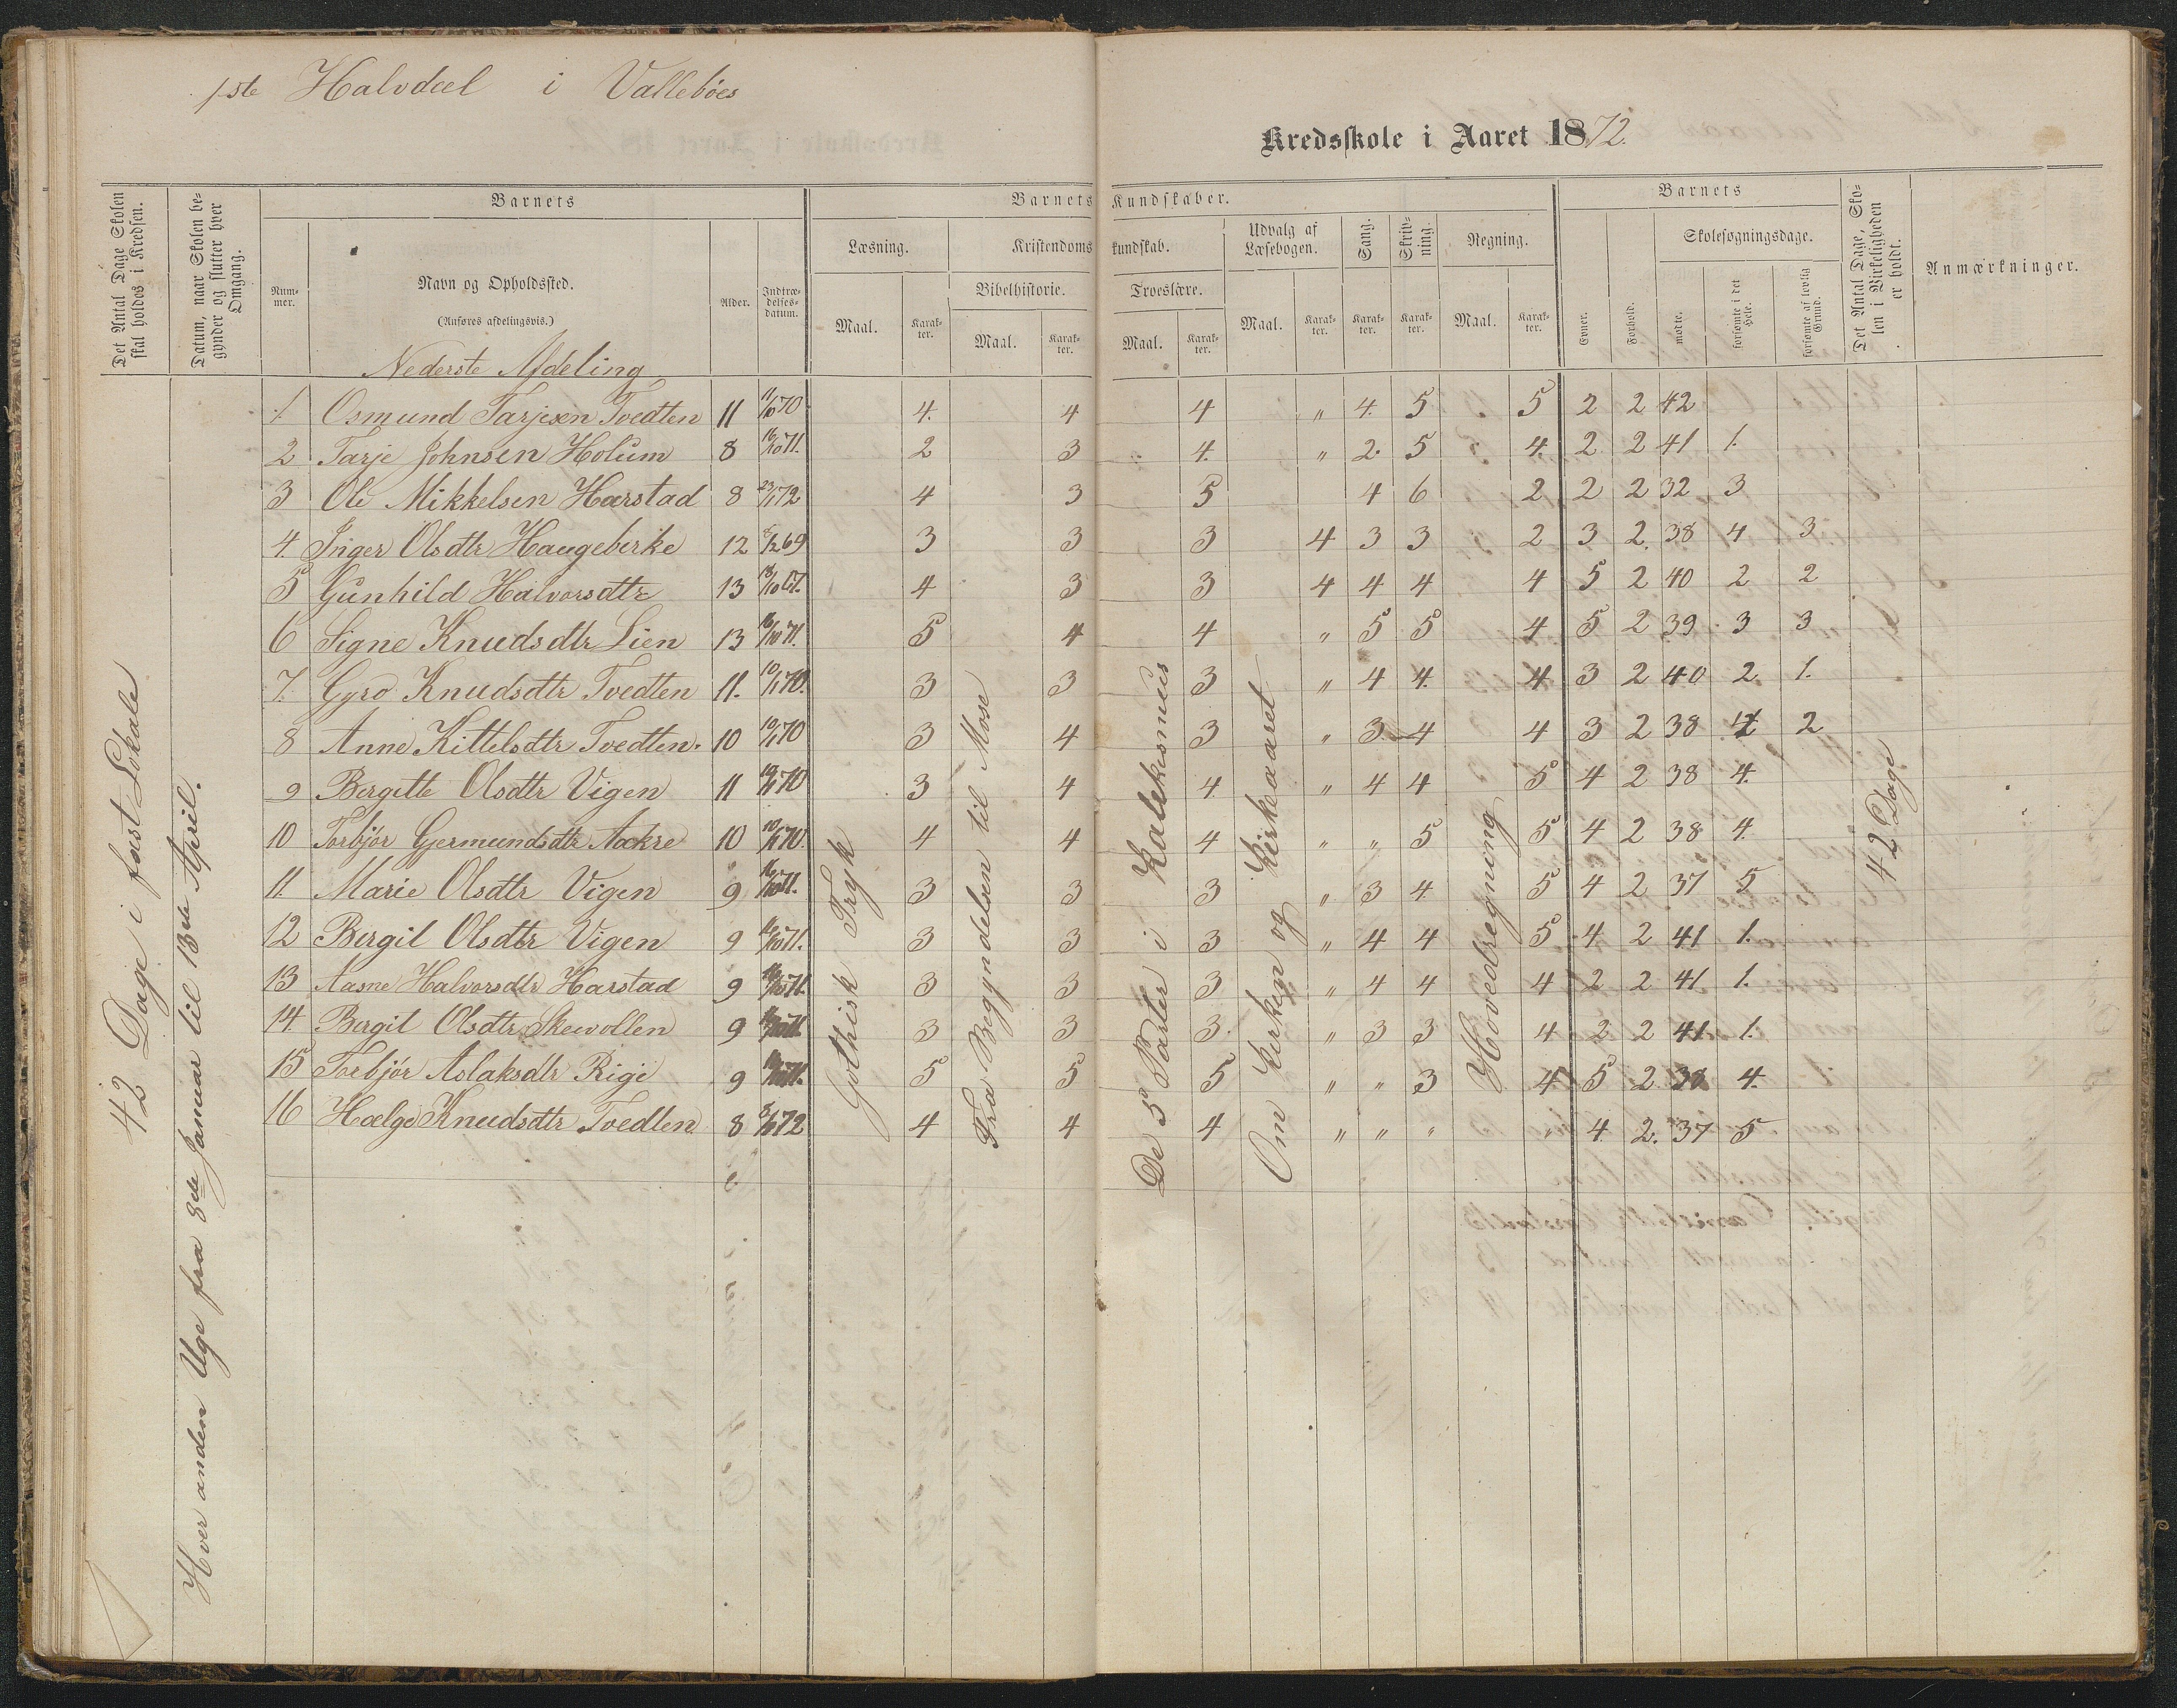 1ste Halvdeel i Valleböes
Kredsskole i Aaret 1872.
Det Antal Dage Skolen skal holdes i Kredsen.
Datum, naar Skolen begynder og slutter hver Omgang.
Barnets
Nummer.
Navn og Opholdssted.
(Anføres afdelingsvis.)
Alder.
Indtrædelsesdatum.
Barnets Kundskaber.
Læsning.
Maal.
Karakter.
Kristendomskundskab.
Bibelhistorie.
Maal.
Karakter.
Troeslære.
Maal.
Karakter.
Udvalg af Læsebogen.
Maal.
Karakter.
Sang.
Karakter.
Skrivning.
Karakter.
Regning.
Maal.
Karakter.
Barnets
Evner.
Forhold.
Skolesøgningsdage.
mødte.
forsømte i det Hele.
forsømte af lovlig Grund.
Det Antal Dage, Skolen i Virkeligheden er holdt.
Anmærkninger.
Nederste Afdeling
1 Osmund Tarjesen Tvedten 11 11/10 70 4. 4 4 " 4. 5 5 2 2 42
2 Tarje Johnsen Holum 8 16/10 71. 2 3 4. " 2. 5 4. 2 2 41 1.
3 Ole Mikkelsen Harstad 8 23/1 72 4 3 5 4 6 2 2 2 32 3
4. Inger Olsdtr Haugebirke 12 8/12 69 3 3 3 4 3 3 2 3 2. 38 4 3
5 Gunhild Halvorsdtr 13 4 3 3 4 4 4 4 5 2 40 2 2
6 Signe Knudsdtr Lien 13 16/10 71. 5 4 4 " 5 5 4 5 2 39 3 3
7. Gyro Knudsdtr Tvedten 11. 10/1 70. 3 3 3 " 4 4. 4 3 2 40 2 1.
8 Anne Kittelsdtr Tvedten. 10 10/1 70 3 4 3 " 3 4 4 3 2 38 4 2
9 Bergitte Olsdtr Vigen 11 10/1 70 3 4 4. " 4 4 5 4 2 38 4.
10 Torbjör Gjermundsdtr Aakre 10 10/1 70. 4 4 4 " " 5 5 4 2 38 4.
11. Marie Olsdtr Vigen 9 16/10 71. 3 3 3 " 3 4. 5 4 2 37 5
12 Bergit Olsdtr Vigen 9 16/10 71. 3 3 3 " 4 4 5 4 2 41 1.
13 Aasne Halvorsdtr Harstad 9 16/10 71. 3 3 3 " 4 4 4 2 2 41 1.
14 Bergit Olsdtr Skevollen 9 16/10 71. 3 3 3. " 3 3 4 2 2 41 1.
15 Torbjör Aslaksdtr Rige 9 16/10 71. 5 5 5 " " 3 4. 5 2 38 4.
16 Hælge Knudsdtr Tvedten 8 8/1 72 4 4 4 " " " " 4 2. 37 5
42 Dage i fast Lokale
Hver anden Uge fra 8de Januar til 13de April.
Gothisk Tryk
Fra Begyndelsen til Mose
De 5 Parter i Katekismus
Om Kirken og Kirkeaaret
Hovedregning
42 Dage